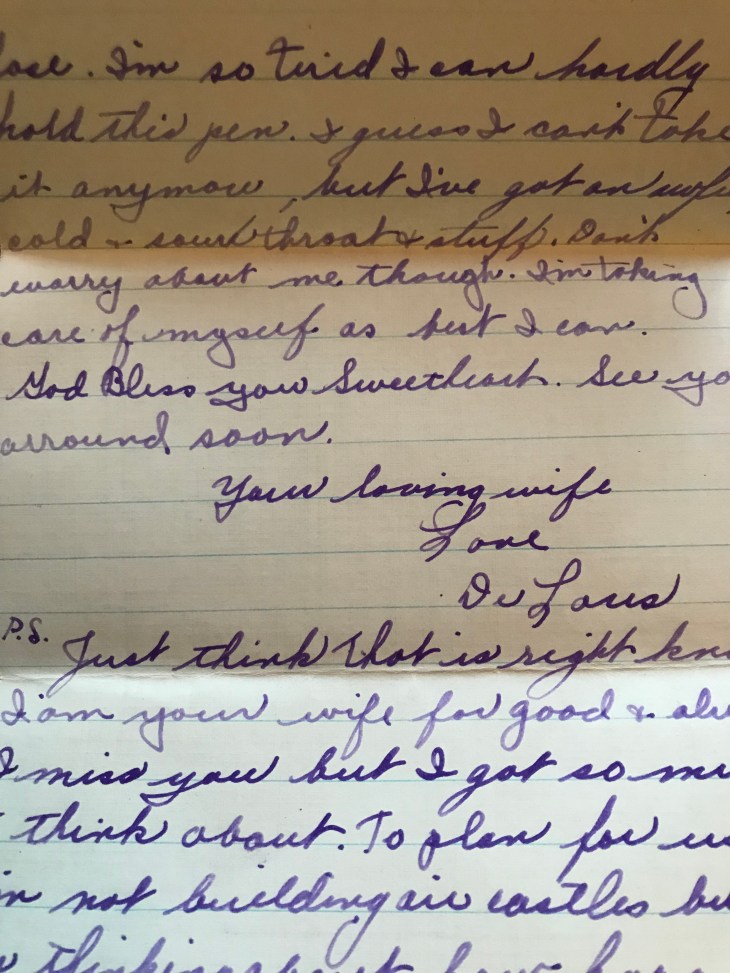 lose. I'm so tired I can hardly
hold this pen. I guess I can't take
it anymore, but I've got an awfu
cold & sour throat & stuff. Don't
worry about me though. I'm taking
care of myself as best I can.
God Bless you Sweetheart. See yo
arround soon.
Your loving wife
Love
De Loris
P.S. Just think that is right kno
I am your wife for good & alw
I miss you but I got so mu
think about. To plan for us
in not building air castles bu
thinking about how